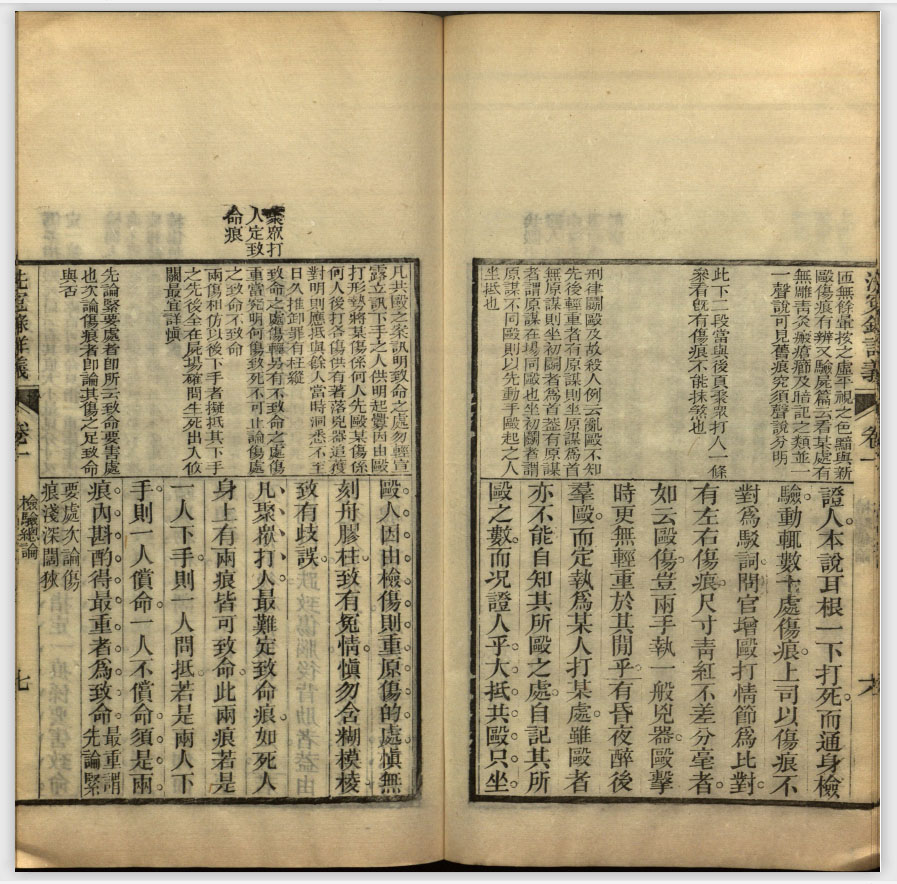 洗冤錄詳義
卷一
匝無餘暈按之虛平視之色黯與新
毆傷痕有辨又驗屍篇云看某處有
無雕青灸瘢瘡癤及暗記之類並一
一聲說可見舊痕究須聲說分明
此下二段當與後頁衆衆打人一條
叅看旣有傷痕不能抹煞也
刑律鬬毆及故殺人例云亂毆不知
先後輕重者有原謀則坐原謀爲首
無原謀則坐初鬬者爲首蓋有原謀
者謂原謀在場同毆也坐初鬬者謂
原謀不同毆則以先動手毆起之人
坐抵也
證人本說耳根一下打死而通身檢
驗動輒數十處傷痕上司以傷痕不
對爲駁詞問官增毆打情節爲比對
有左右傷痕尺寸靑紅不差分毫者
如云毆傷豈兩手執一般兇器毆擊
時更無輕重於其間乎有昏夜醉後
羣毆而定執爲某人打某處雖毆者
亦不能自知其所毆之處自記其所
毆之數而况證人乎大抵共毆只坐
六
聚眾打
人定致
命痕
凡共毆之案訊明致命之處勿輕宣
露立訊下手之人供明起釁因由毆
打形勢將某傷係何人先毆某傷係
何人後打各傷供有著落兇器追獲
對明則應抵與餘人當時洞悉不至
日久推卸罪有枉縱
致命之處傷轉易有不致命之處傷
重當究明何傷致死不可止論傷處
之致命不致命
兩傷相仿以後下手者擬抵其下手
之先後全在屍場確問生死出入攸
關最宜詳愼
先論緊要處者卽所云致命要害處
也次論傷痕者卽論其傷之足致命
與否
毆人因由檢傷則重原傷的處愼無
刻舟膠柱致有冤情愼勿含糊模棱
致有歧誤
凡聚眾打人最難定致命痕如死人
身上有兩痕皆可致命此兩痕若是
一人下手則一人問抵若是兩人下
手則一人償命一人不償命須是兩
痕內斟酌得最重者爲致命最重謂先論緊
要處次論傷
痕淺深闊狹
洗冤錄詳義
卷一
檢驗總論
七